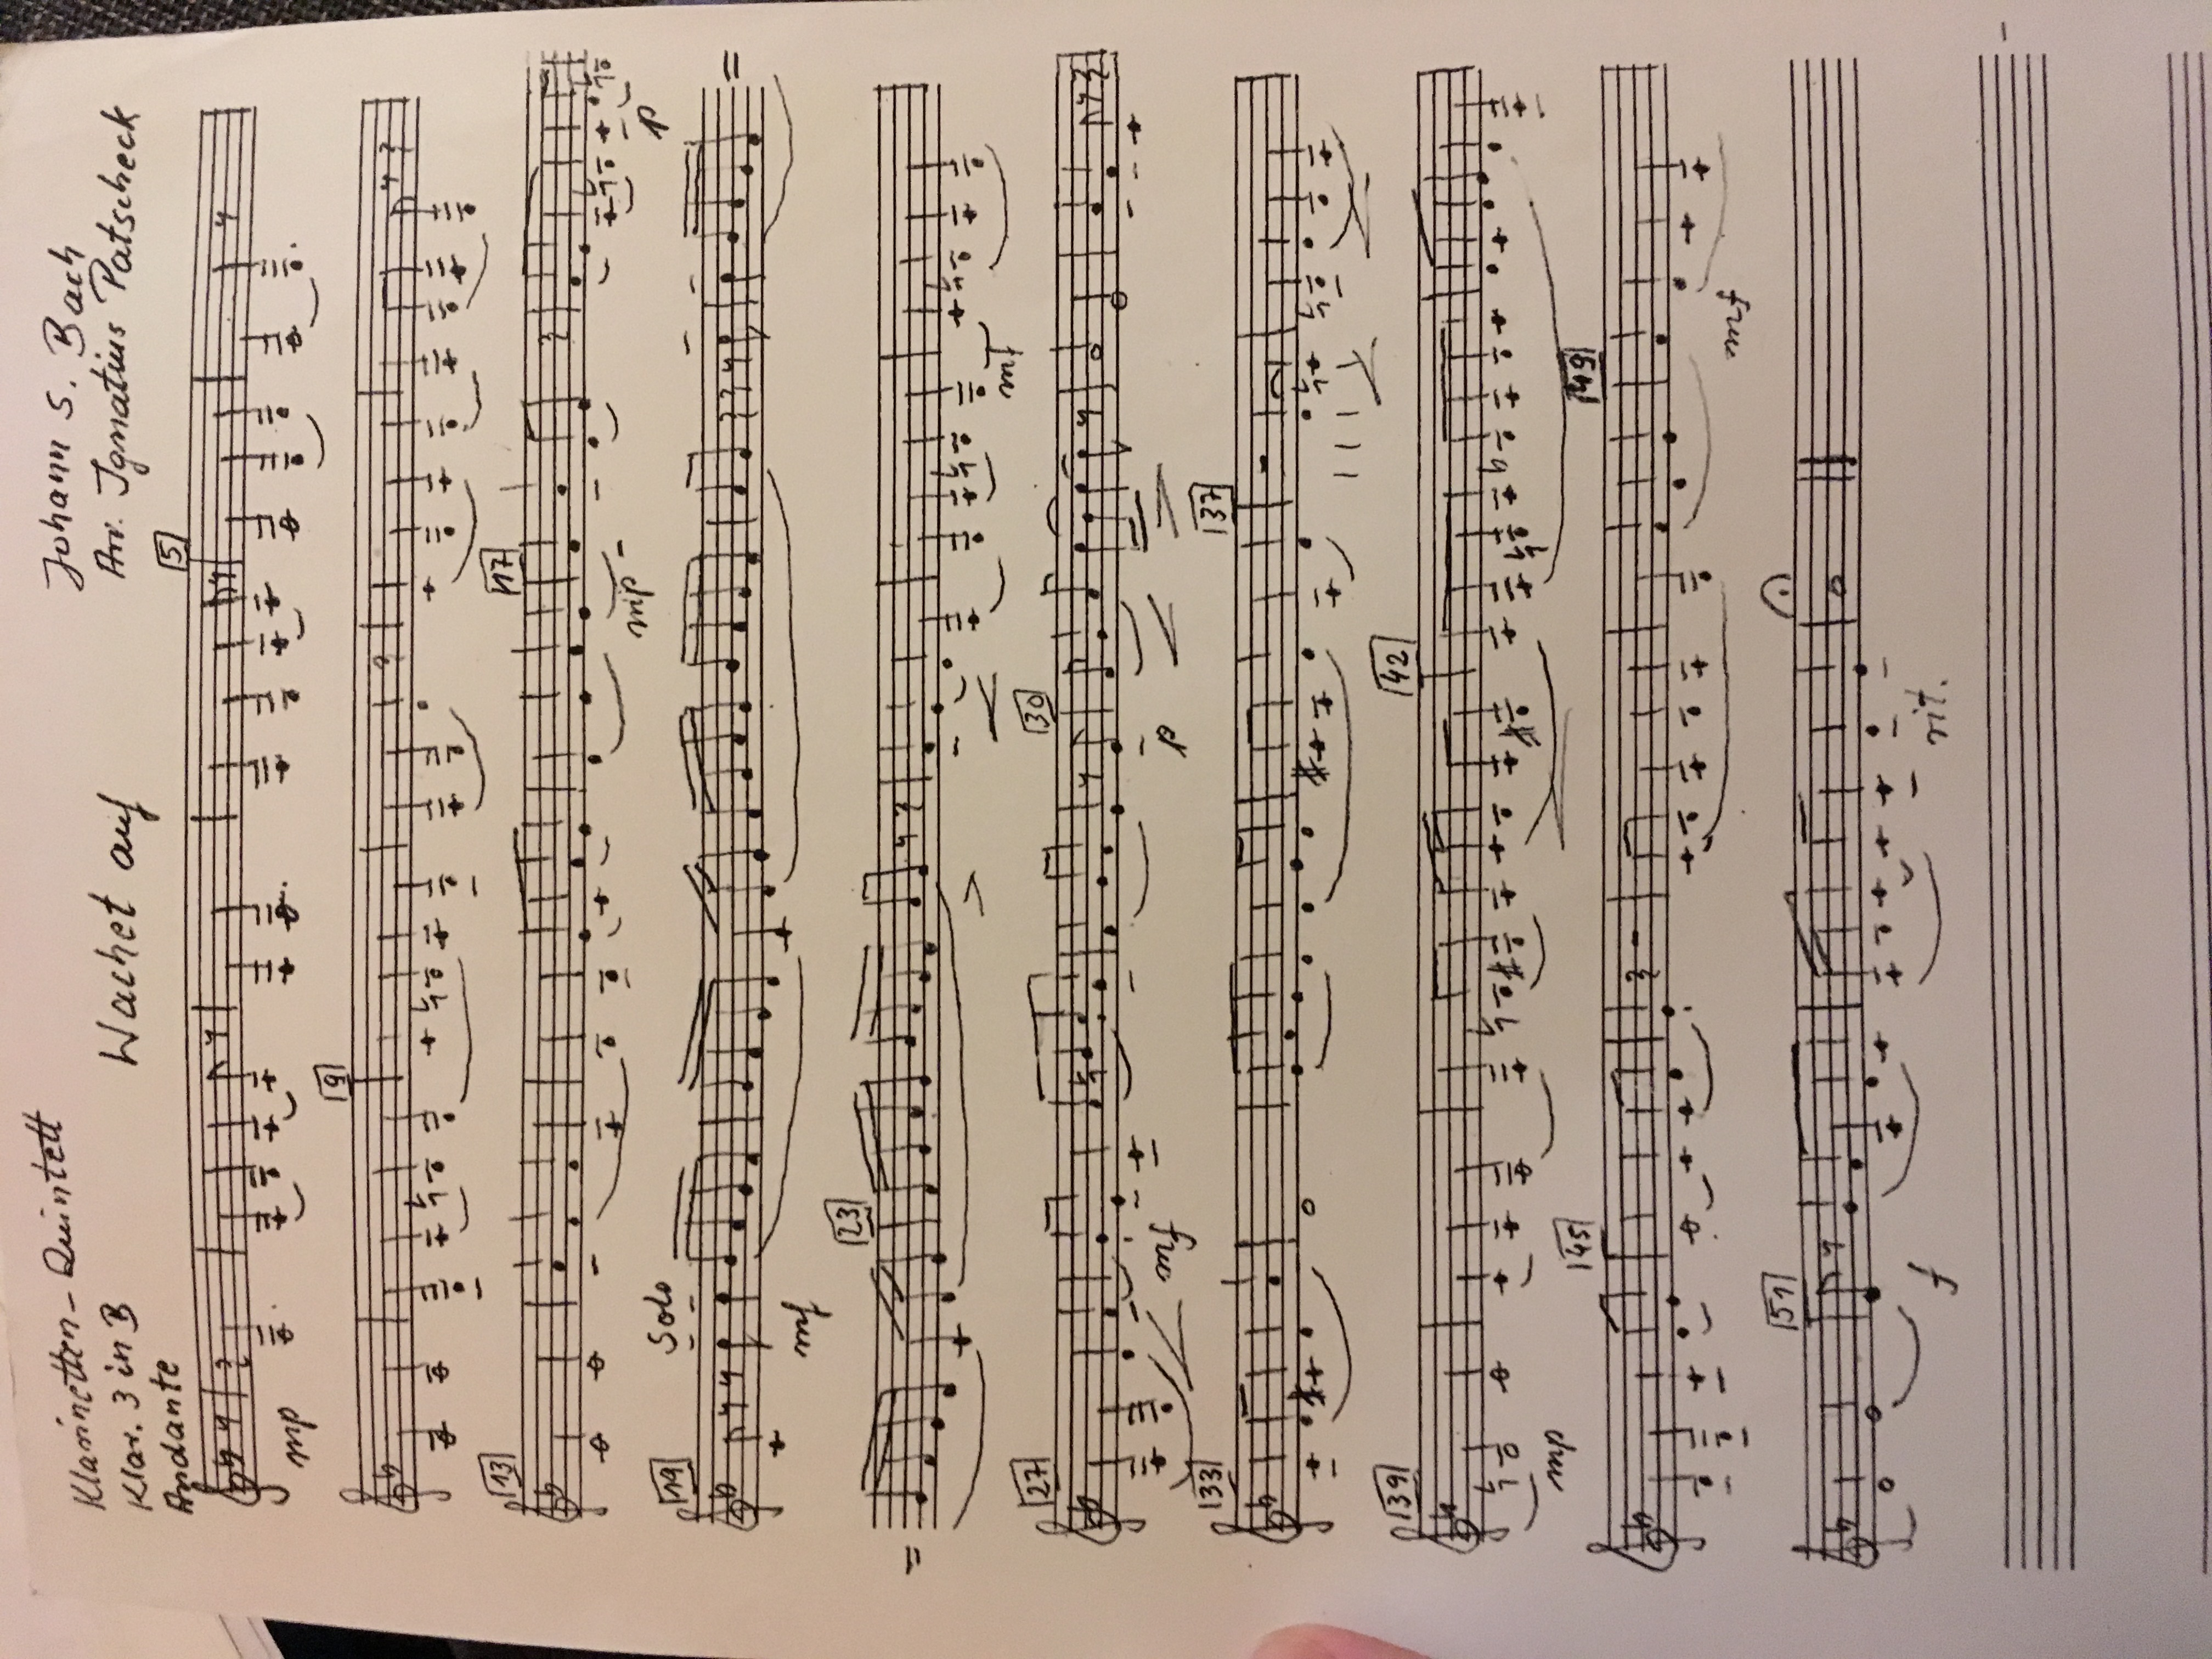 Klarinetten-Quintett
Klar. 3 in B
Andante
Wachet auf
Johann S. Bach
Arr. Ignatius Patscheck
5
mp
9
13
17
mp
p
19
Solo
mf
23
mf
27
30
mf
p
33
37
39
42
mp
45
49
mf
51
f
rit.